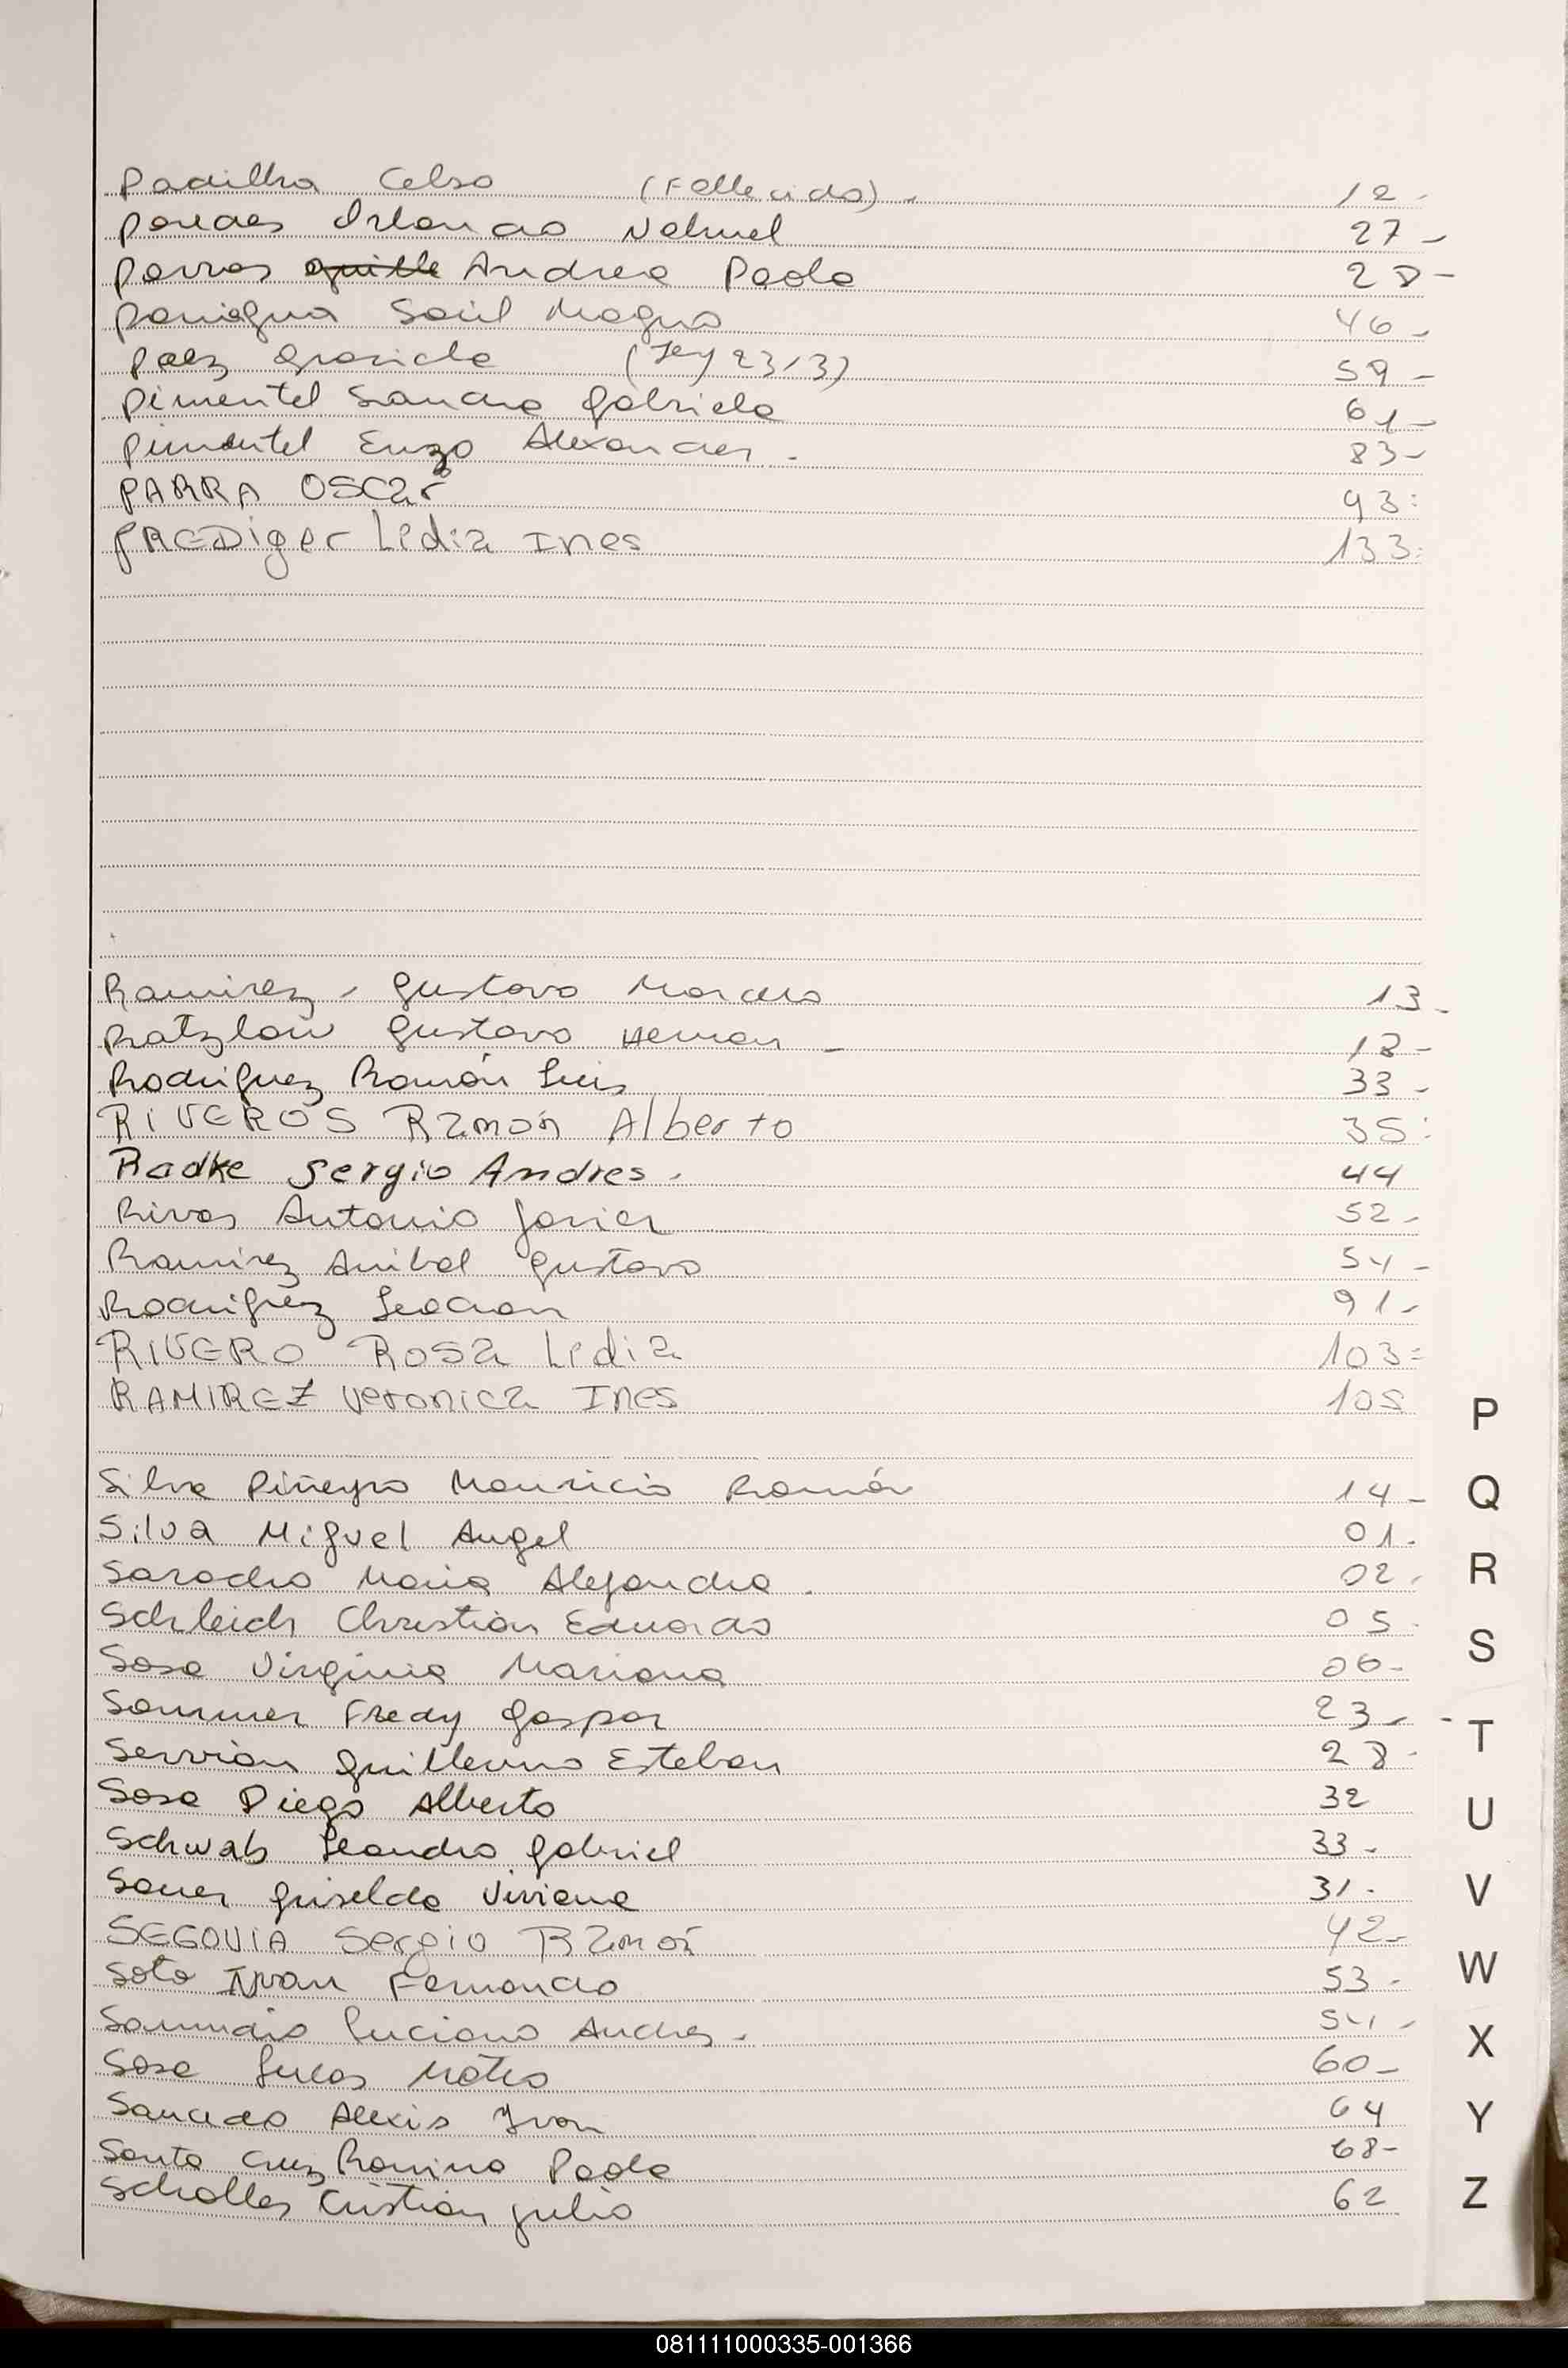 Padilha Celso (Fallecido) - 12 -
Paredes Orlando Nahuel 27 -
Parras Andrea Paola 28 -
Paniagua Saúl Magno 46 -
Paez Graciela (Ley 23/3) 59 -
Pimentel Sandra Gabriela 61 -
Pimentel Enzo Alexander - 83 -
PARRA OSCar 93:
PREDiger Lidia Ines 133:
Ramirez - Gustavo Marcelo 13 -
Ratzlow Gustavo Hernan - 18 -
Rodriguez Ramón Luis 33 -
RIVEROS Ramón Alberto 35:
Radke Sergio Andres. 44
Rivas Antonio Javier 52 -
Ramirez Anibal Gustavo 54 -
Rodriguez Leochon 91 -
RIVERO ROSa Lidia 103:
RAMIREZ Veronica Ines 105
Silva Piñeyro Mauricio Ramón 14 -
Silva Miguel Angel 01.
Saracho Maria Alejandra. 02.
Schleich Christian Eduardo 05.
Sosa Virginia Mariana 06 -
Sommer Fredy Gaspar 23 -
Servian Guillermo Esteban 28 -
Sosa Diego Alberto 32
Schwab Leandro Gabriel 33 -
Sauer Griselda Viviana 31 -
SEGOVIA Sergio Ramón 42 -
Soto Ivan Fernando 53 -
Luciano Andres - 54 -
Sosa Lucas Mateo 60 -
Alexis Ivan 64
Santa Cruz Romina Paola 68 -
Scholles Cristian Julio 62
P
Q
R
S
T
U
V
W
X
Y
Z
081111000335-001366